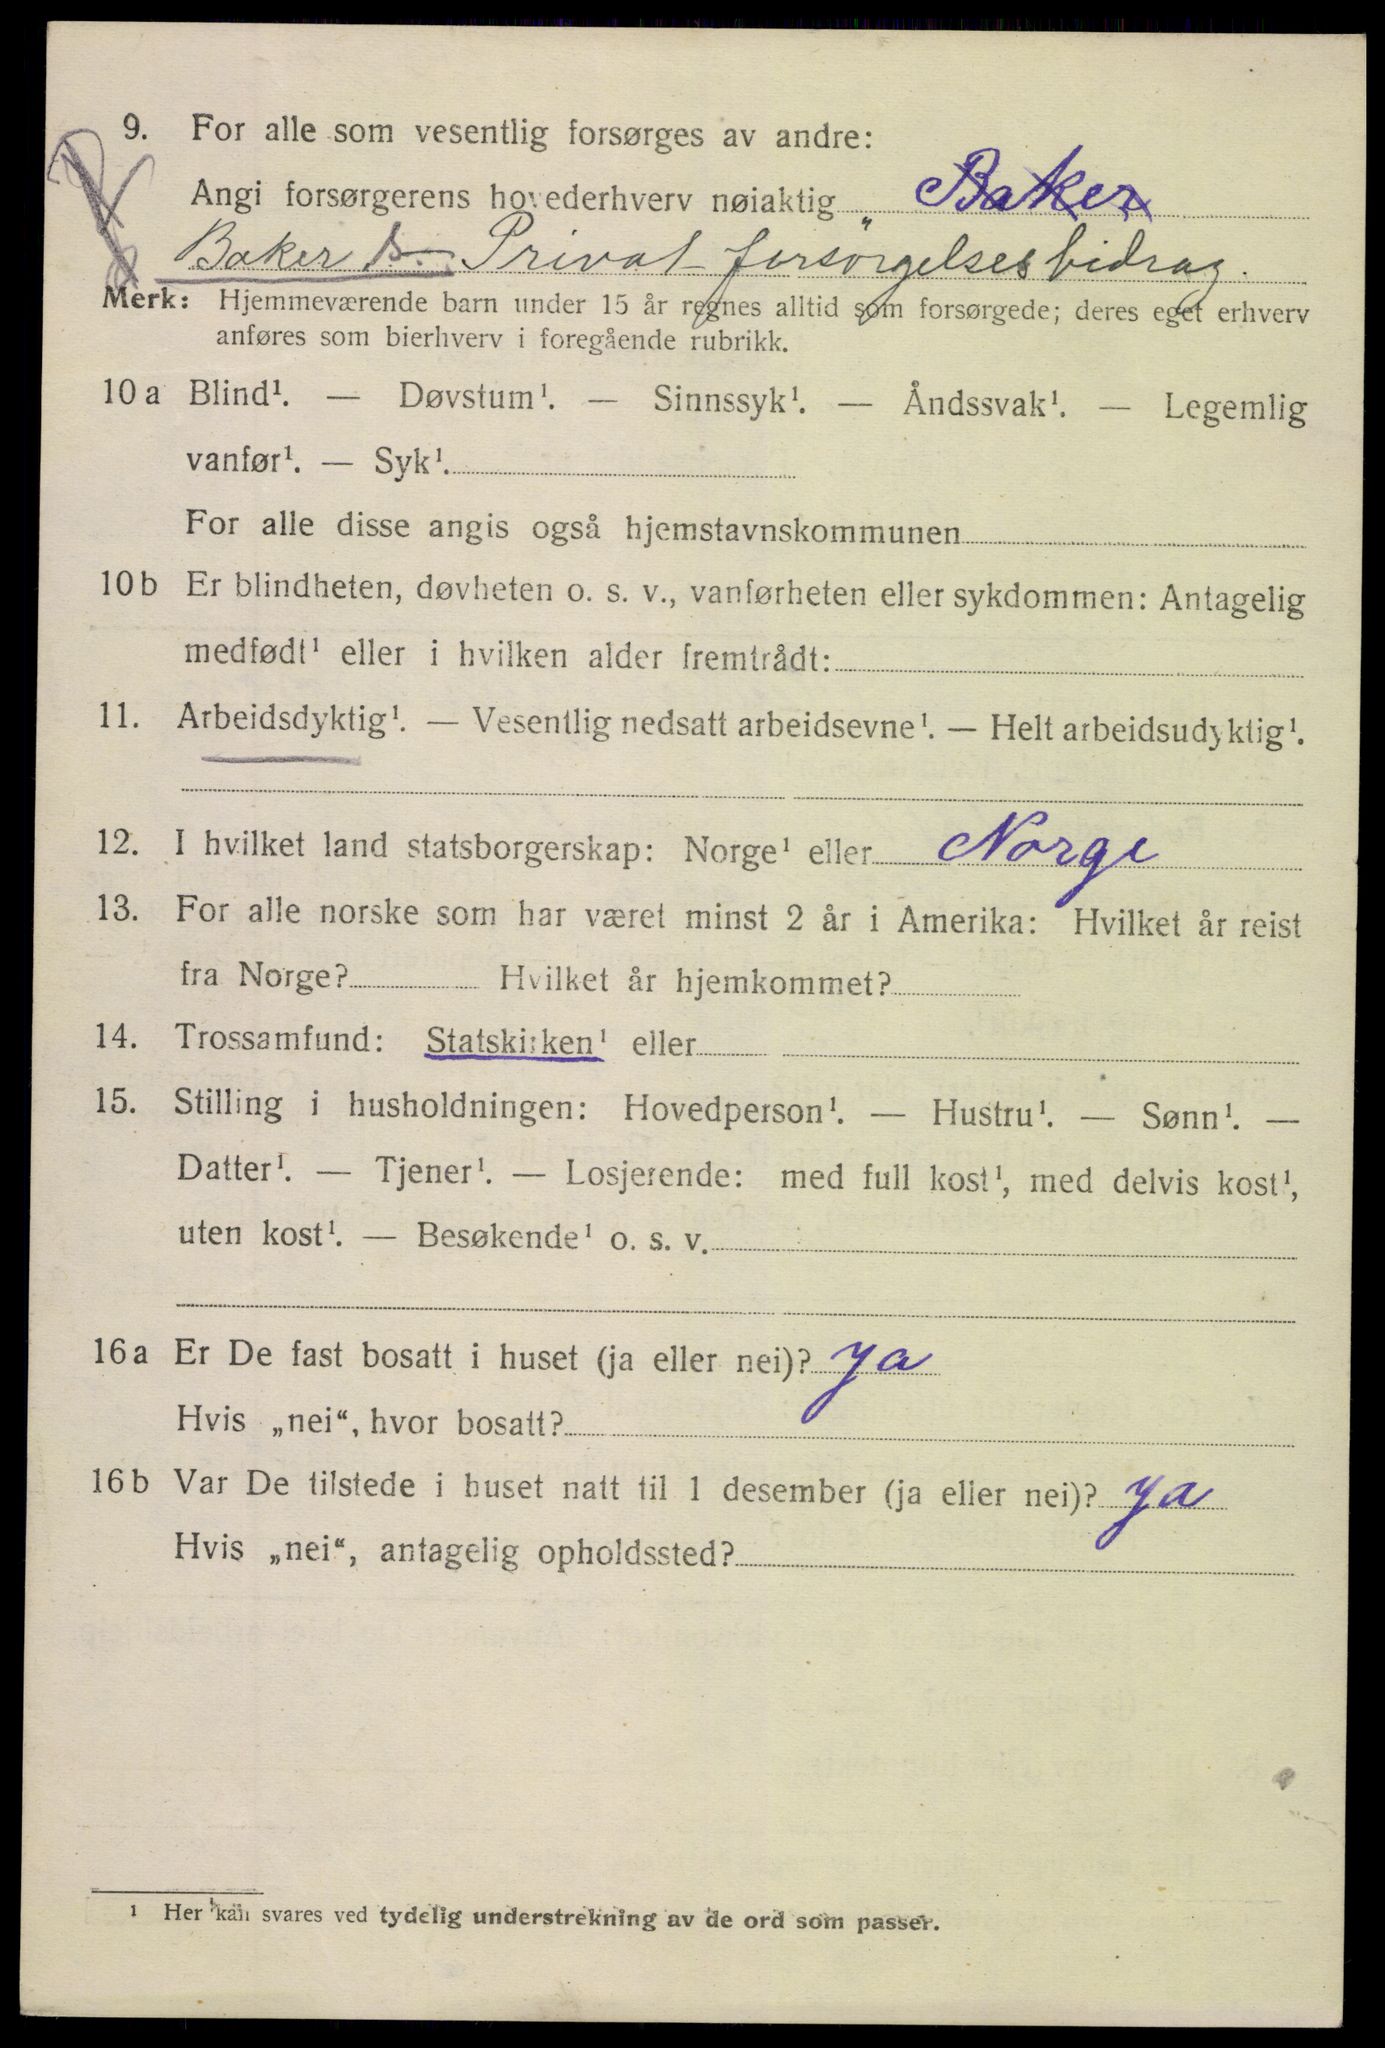 9. For alle som vesentlig forsørges av andre:
Angi forsørgerens hovederhverv nøiaktig Baker
Baker s. Privat forsörgelsesbidrag.
Merk: Hjemmeværende barn under 15 år regnes alltid som forsørgede; deres eget erhverv
anføres som bierhverv i foregående rubrikk.
10 a Blind¹. — Døvstum¹. — Sinnssyk¹. — Åndssvak¹. — Legemlig
vanfør¹. — Syk¹.
For alle disse angis også hjemstavnskommunen
10 b Er blindheten, døvheten o. s. v., vanførheten eller sykdommen: Antagelig
medfødt¹ eller i hvilken alder fremtrådt:
11. Arbeidsdyktig¹. — Vesentlig nedsatt arbeidsevne¹. — Helt arbeidsudyktig¹.
12. I hvilket land statsborgerskap: Norge¹ eller Norge
13. For alle norske som har været minst 2 år i Amerika: Hvilket år reist
fra Norge? Hvilket år hjemkommet?
14. Trossamfund: Statskirken¹ eller
15. Stilling i husholdningen: Hovedperson¹. — Hustru¹. — Sønn¹. —
Datter¹. — Tjener¹. — Losjerende: med full kost¹, med delvis kost¹,
uten kost¹. — Besøkende¹ o. s. v.
16 a Er De fast bosatt i huset (ja eller nei)? ya
Hvis „nei“, hvor bosatt?
16 b Var De tilstede i huset natt til 1 desember (ja eller nei)? ya
Hvis „nei“, antagelig opholdssted?
¹ Her kan svares ved tydelig understrekning av de ord som passer.